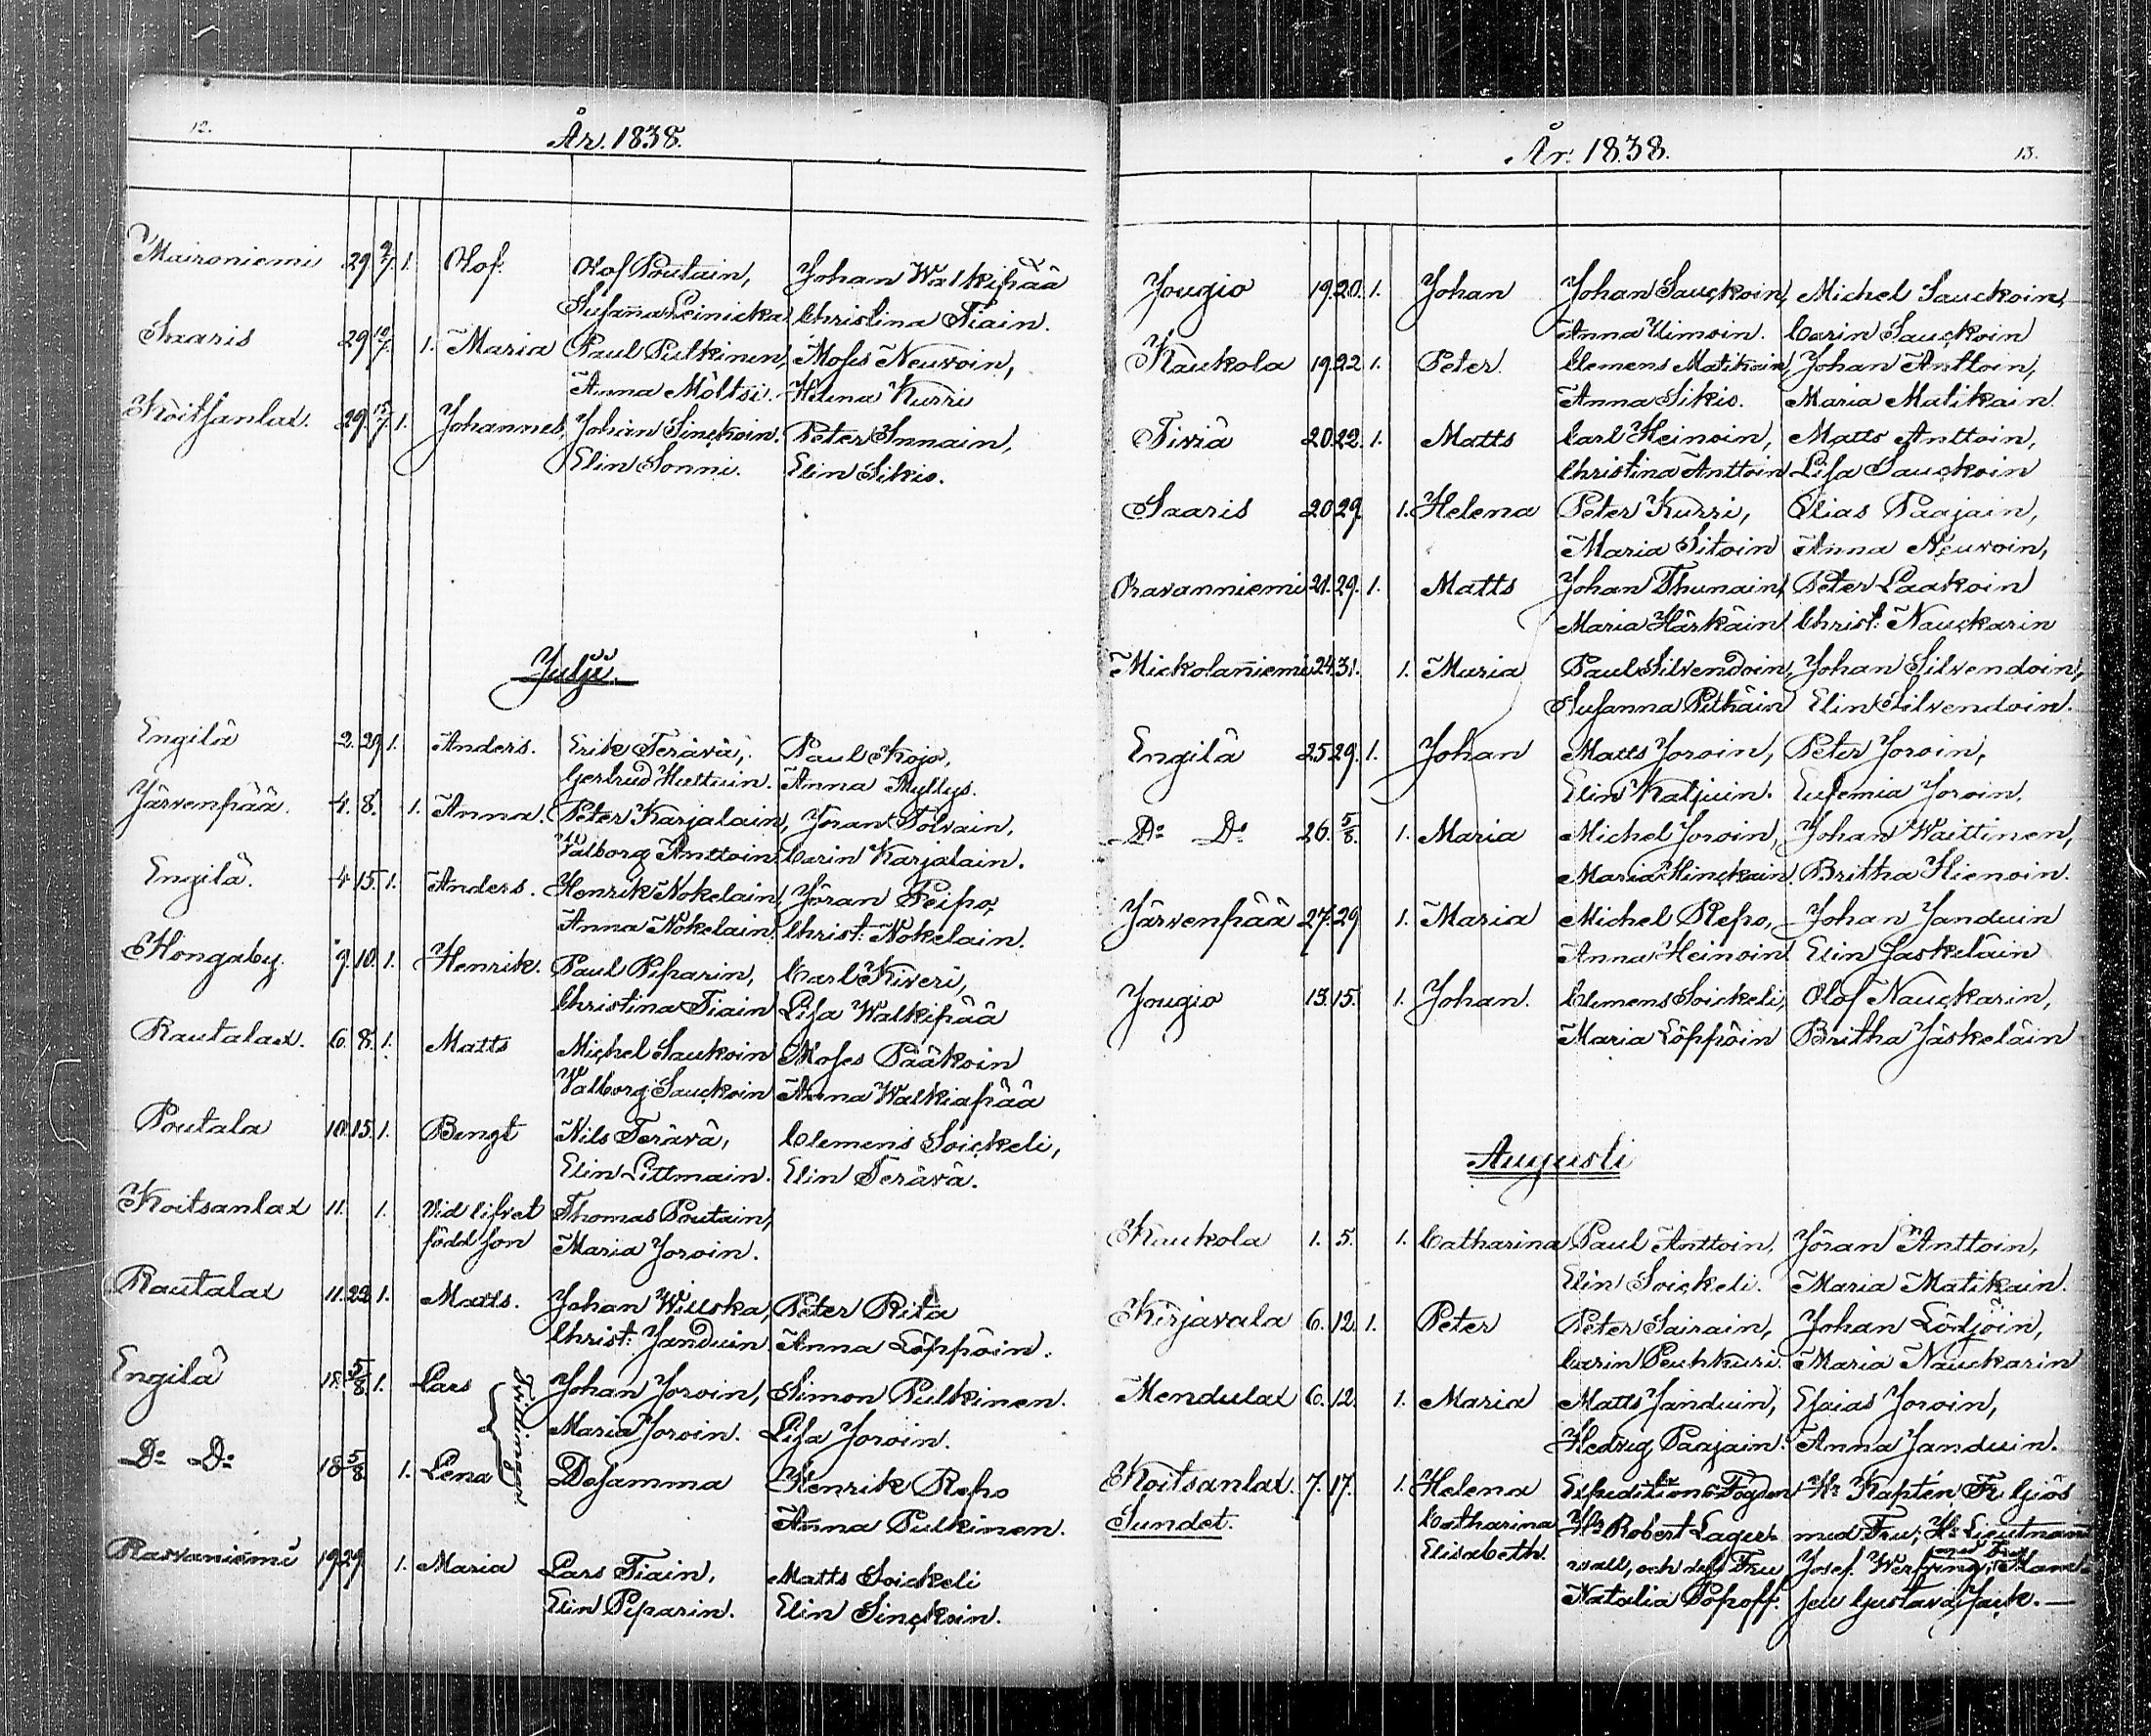 12.
År. 1838.
Maironiemi 29 9/7. 1. Olof. Olof Poutain, Johan Walkipää
Susanna Leinicka Christina Tiain.
Saaris 29 10/7. 1. Maria Paul Pulkinen, Moses Neuvoin,
Anna Möltsi. Helena Kurri
Koitsanlax. 29. 15/7. 1. Johannes, Johan Sinckoin. Peter Innain,
Elin Sonni. Elin Sikio.
Julii.
Engilä 2. 29. 1. Anders. Erik Terävä, Paul Kojo,
Gertrud Huttuin. Anna Myllys.
Järvenpää. 4. 8. 1. Anna. Peter Karjalain, Jöran Tolvain,
Valborg Anttoin. Carin Karjalain.
Engilä. 4. 15. 1. Anders. Henrik Nokelain, Jöran Peipo,
Anna Nokelain. Christ: Nokelain.
Hongaby. 9. 10. 1. Henrik. Paul Piparin, Carl Kiveri,
Christina Tiain Lisa Walkipää
Rautalax. 6. 8. 1. Matts Michel Saukoin Moses Pääkoin
Valborg Sauckoin Anna Walkiapää
Poutala 10. 15. 1. Bengt Nils Terävä, Clemens Soickeli,
Elin Littmain. Elin Terävä.
Koitsanlax 11. 1. Vid lifvet Thomas Poutain,
född son Maria Joroin.
Rautalax 11. 22. 1. Matts. Johan Willska, Peter Rita
Christ: Janduin Anna Löppöin.
Engilä 18. 5/8 1. Lars Tvillingar. Johan Joroin, Simon Pulkinen.
Maria Joroin. Lisa Joroin.
Do Do 18 5/8 1. Lena Desamma Henrik Repo
Anna Pulkinen.
Ravaniemi 19. 29. 1. Maria Lars Tiain, Matts Soickeli
Elin Piparin. Elin Sinckoin.
År. 1838. 13.
Jougio 19. 20. 1. Johan Johan Sauckoin, Michel Sauckoin,
Anna Uimoin. Carin Sauckoin
Kaukola 19. 22 1. Peter. Clemens Matikain, Johan Anttoin,
Anna Sikio. Maria Matikain.
Tiviä 20. 22. 1. Matts Carl Heinoin, Matts Anttoin,
Christina Anttoin Lisa Sauckoin
Saaris 20 29. 1. Helena Peter Kurri, Elias Paajain,
Maria Sitoin Anna Neuvoin,
Oravanniemi 21. 29. 1. Matts Johan Thunain, Peter Laakoin
Maria Härkäin Christ: Nauckarin
Mickolaniemi 24. 31. 1. Maria Paul Silvendoin, Johan Silvendoin,
Susanna Pitkäin Elin Silvendoin.
Engilä 25 29. 1. Johan Matts Joroin, Peter Joroin,
Elin Katjuin. Eufemia Joroin.
Do Do 26. 5/8. 1. Maria Michel Joroin, Johan Waittinen,
Maria Hinckain. Britha Hienoin.
Järvenpää 27. 29 1. Maria Michel Repo, Johan Janduin
Anna Heinoin Elin Jaskeläin
Jougio 13. 15. 1. Johan. Clemens Soickeli, Olof Nauckarin,
Maria Löppöin Britha Jäskeläin
Augusti
Kaukola 1. 5. 1. Catharina Paul Anttoin, Jöran Anttoin,
Elin Soickeli. Maria Matikain.
Kirjavala 6. 12. 1. Peter Peter Sairain, Johan Lödjöin,
Carin Peuhkuri. Maria Nauckarin
Mendulax 6. 12. 1. Maria Matts Janduin, Esaias Joroin,
Hedvig Paajain. Anna Janduin.
Koitsanlax. 7. 17. 1. Helena Expeditions Fogden Hr Kapten Fr. Gjös
Sundet. Catharina Hr Robert Lager- med Fru, Hr Lieutnant
Elisabeth. wall, och dess Fru Josef. med Fru, Mam-
Natalia Popoff. sell Gustava Jack. —